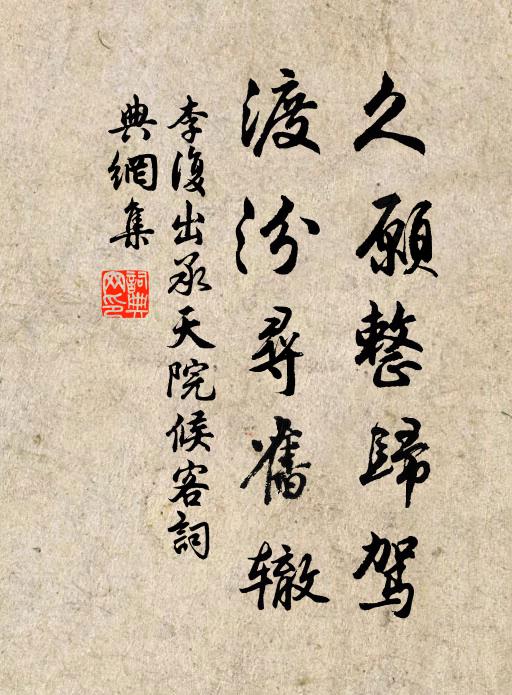 久願整歸駕
渡汾尋舊辙
李復出承天院候客詞
典網集
詞典网印